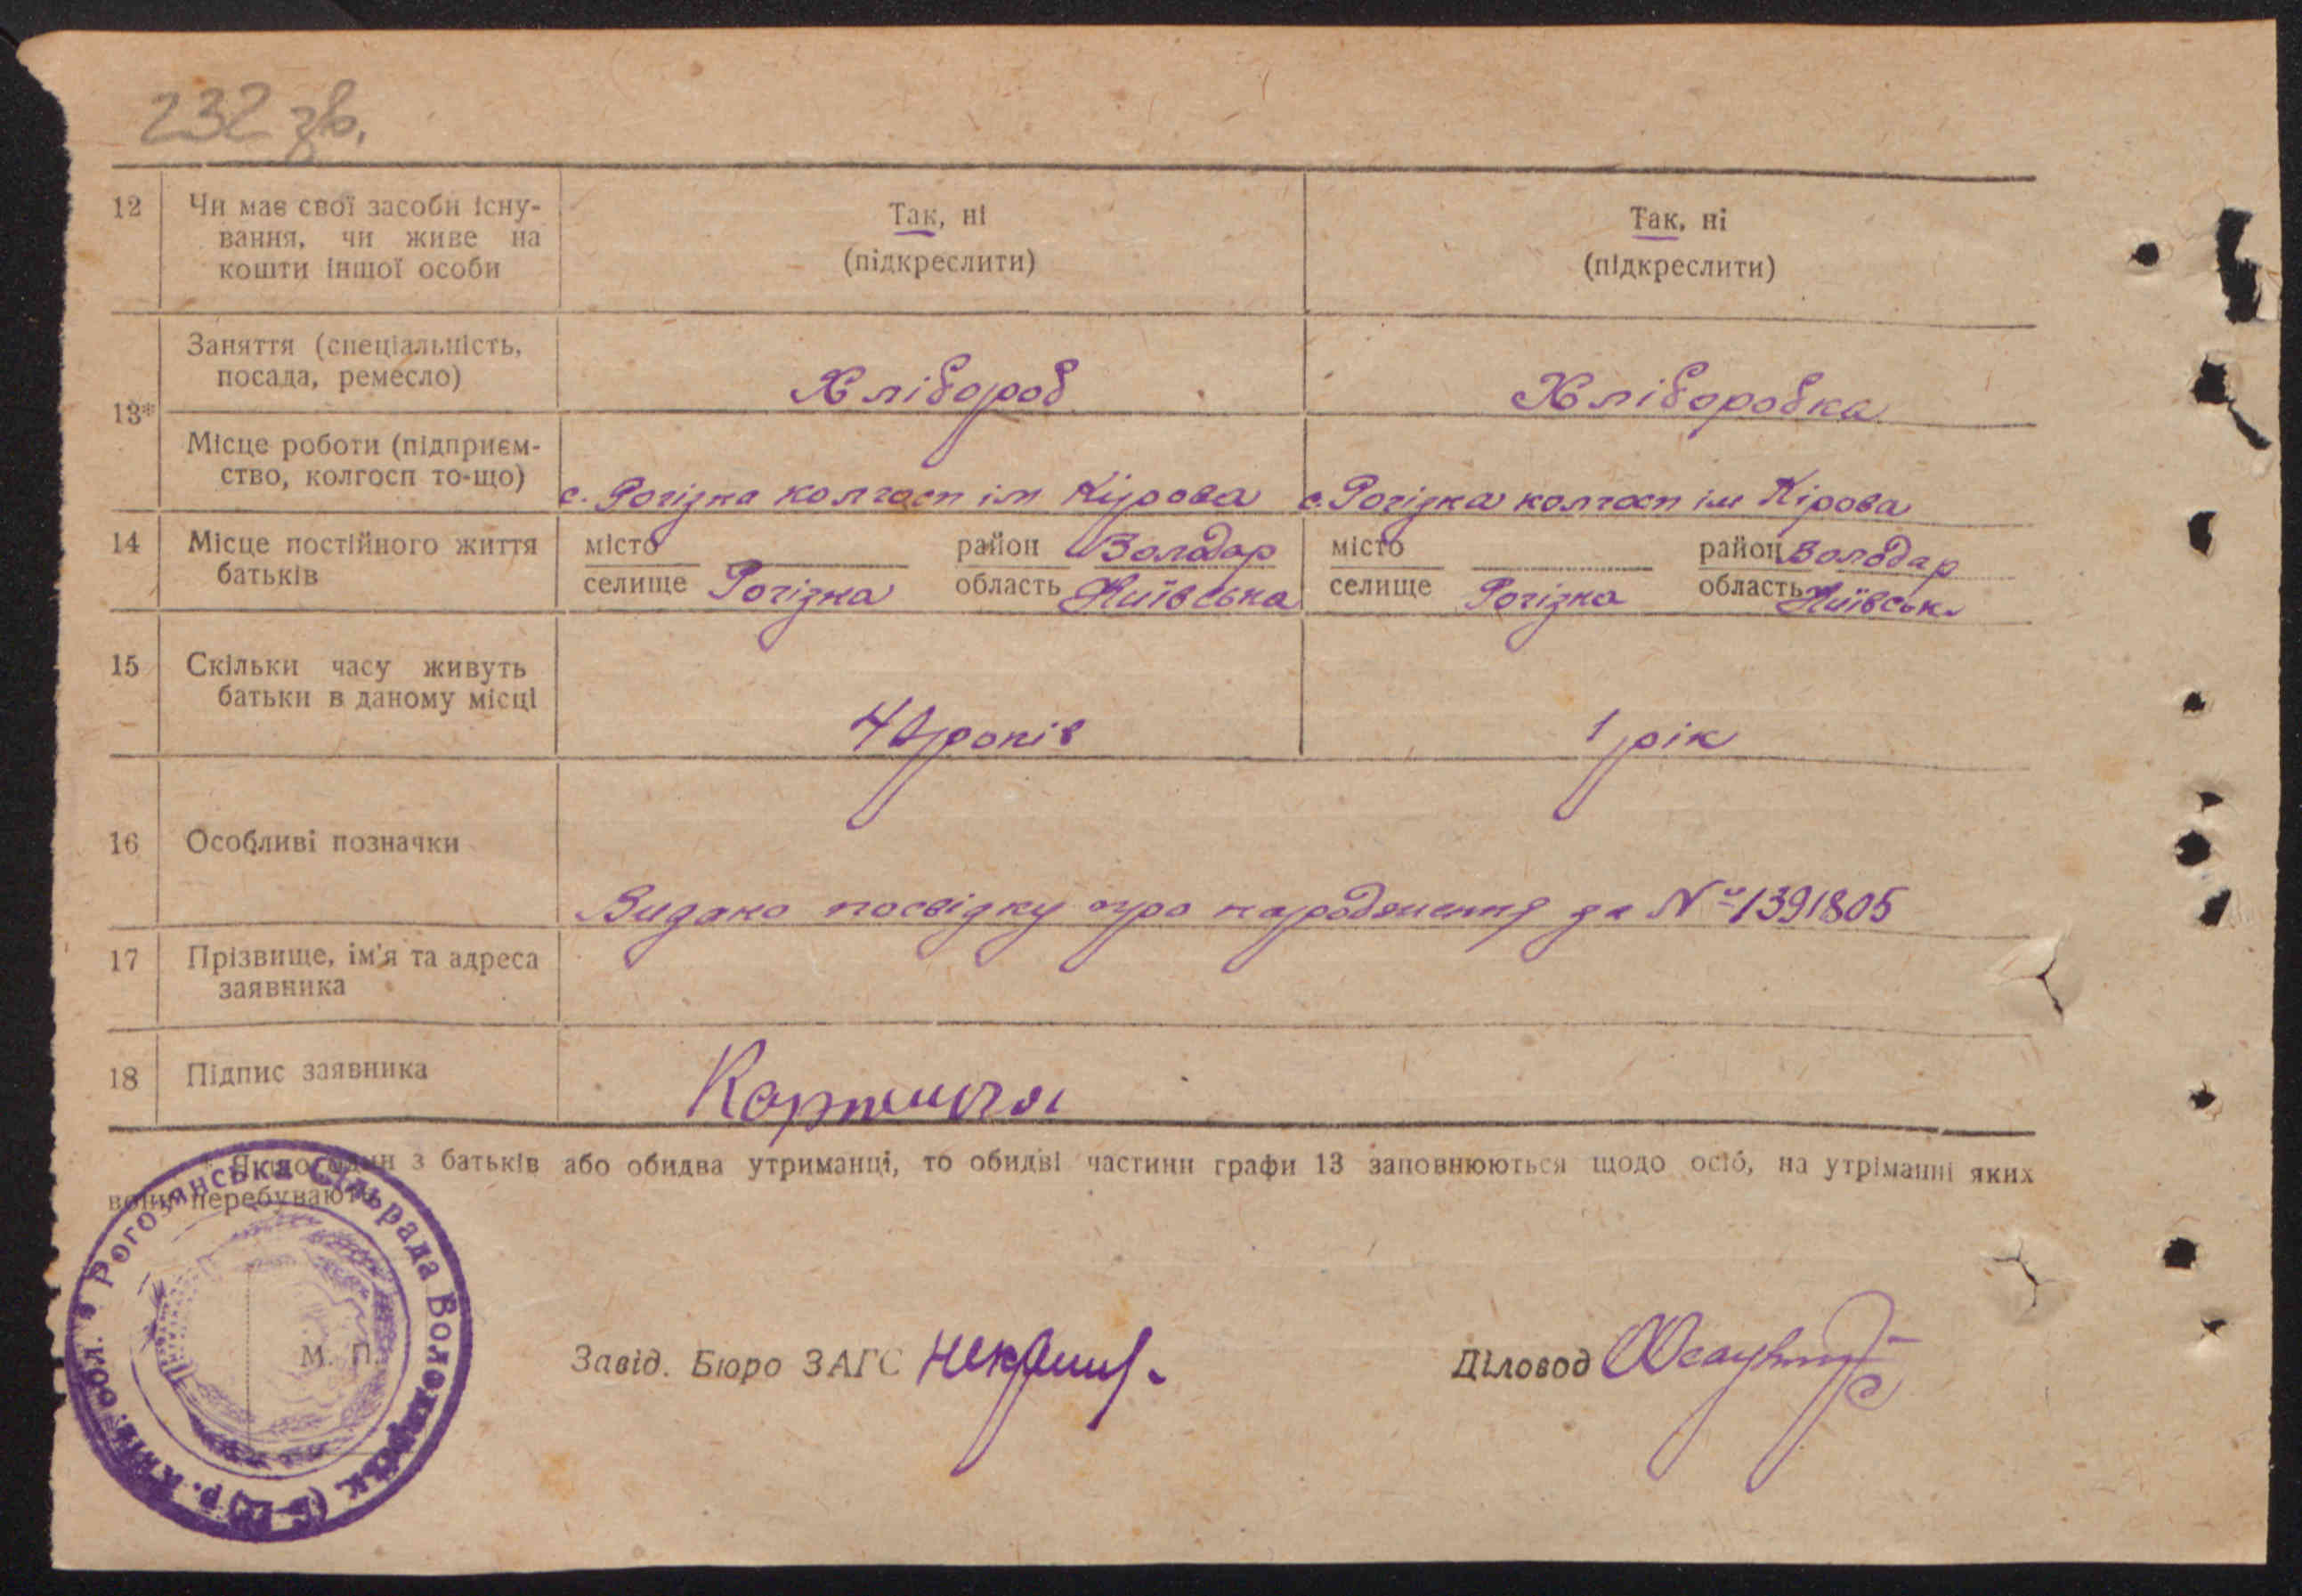 232 зв.
12 Чи має свої засоби існу-
вання, чи живе на
кошти іншої особи
Так, ні
(підкреслити)
Так, ні
(підкреслити)
13*
Заняття (спеціальність,
посада, ремесло)
Хлібороб
Хліборобка
Місце роботи (підприєм-
ство, колгосп то-що)
с. Рогізка колгосп ім Кірова
с. Рогізка колгосп ім Кірова
14 Місце постійного життя
батьків
місто район Володар
селище Рогізка область Київська
місто район Володар
селище Рогізка область Київськ
15 Скільки часу живуть
батьки в даному місці
років
1 рік
16 Особливі позначки
Видано посвідку про народження за № 1391805
17 Прізвище, ім'я та адреса
заявника
18 Підпис заявника
* Якщо один з батьків або обидва утриманці, то обидві частини графи 13 заповнюються щодо осіб, на утріманні яких
вони перебувають
Сільрада Володарськ. р. Київ. обл.
М. П.
Завід. Бюро ЗАГС
Діловод